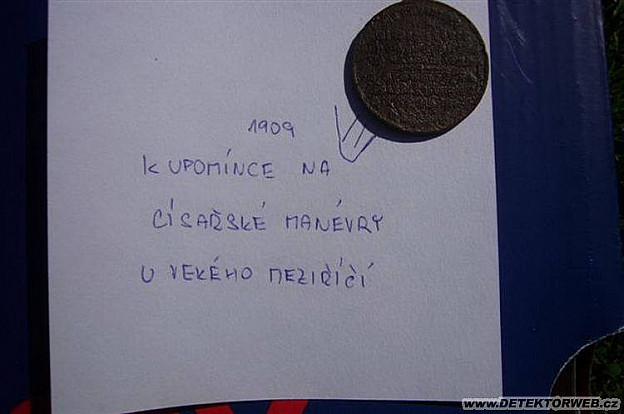 1909
K UPOMÍNCE NA
CÍSAŘSKÉ MANÉVRY
U VEKÉHO MEZIŘÍČÍ
www.DETEKTORWEB.cz